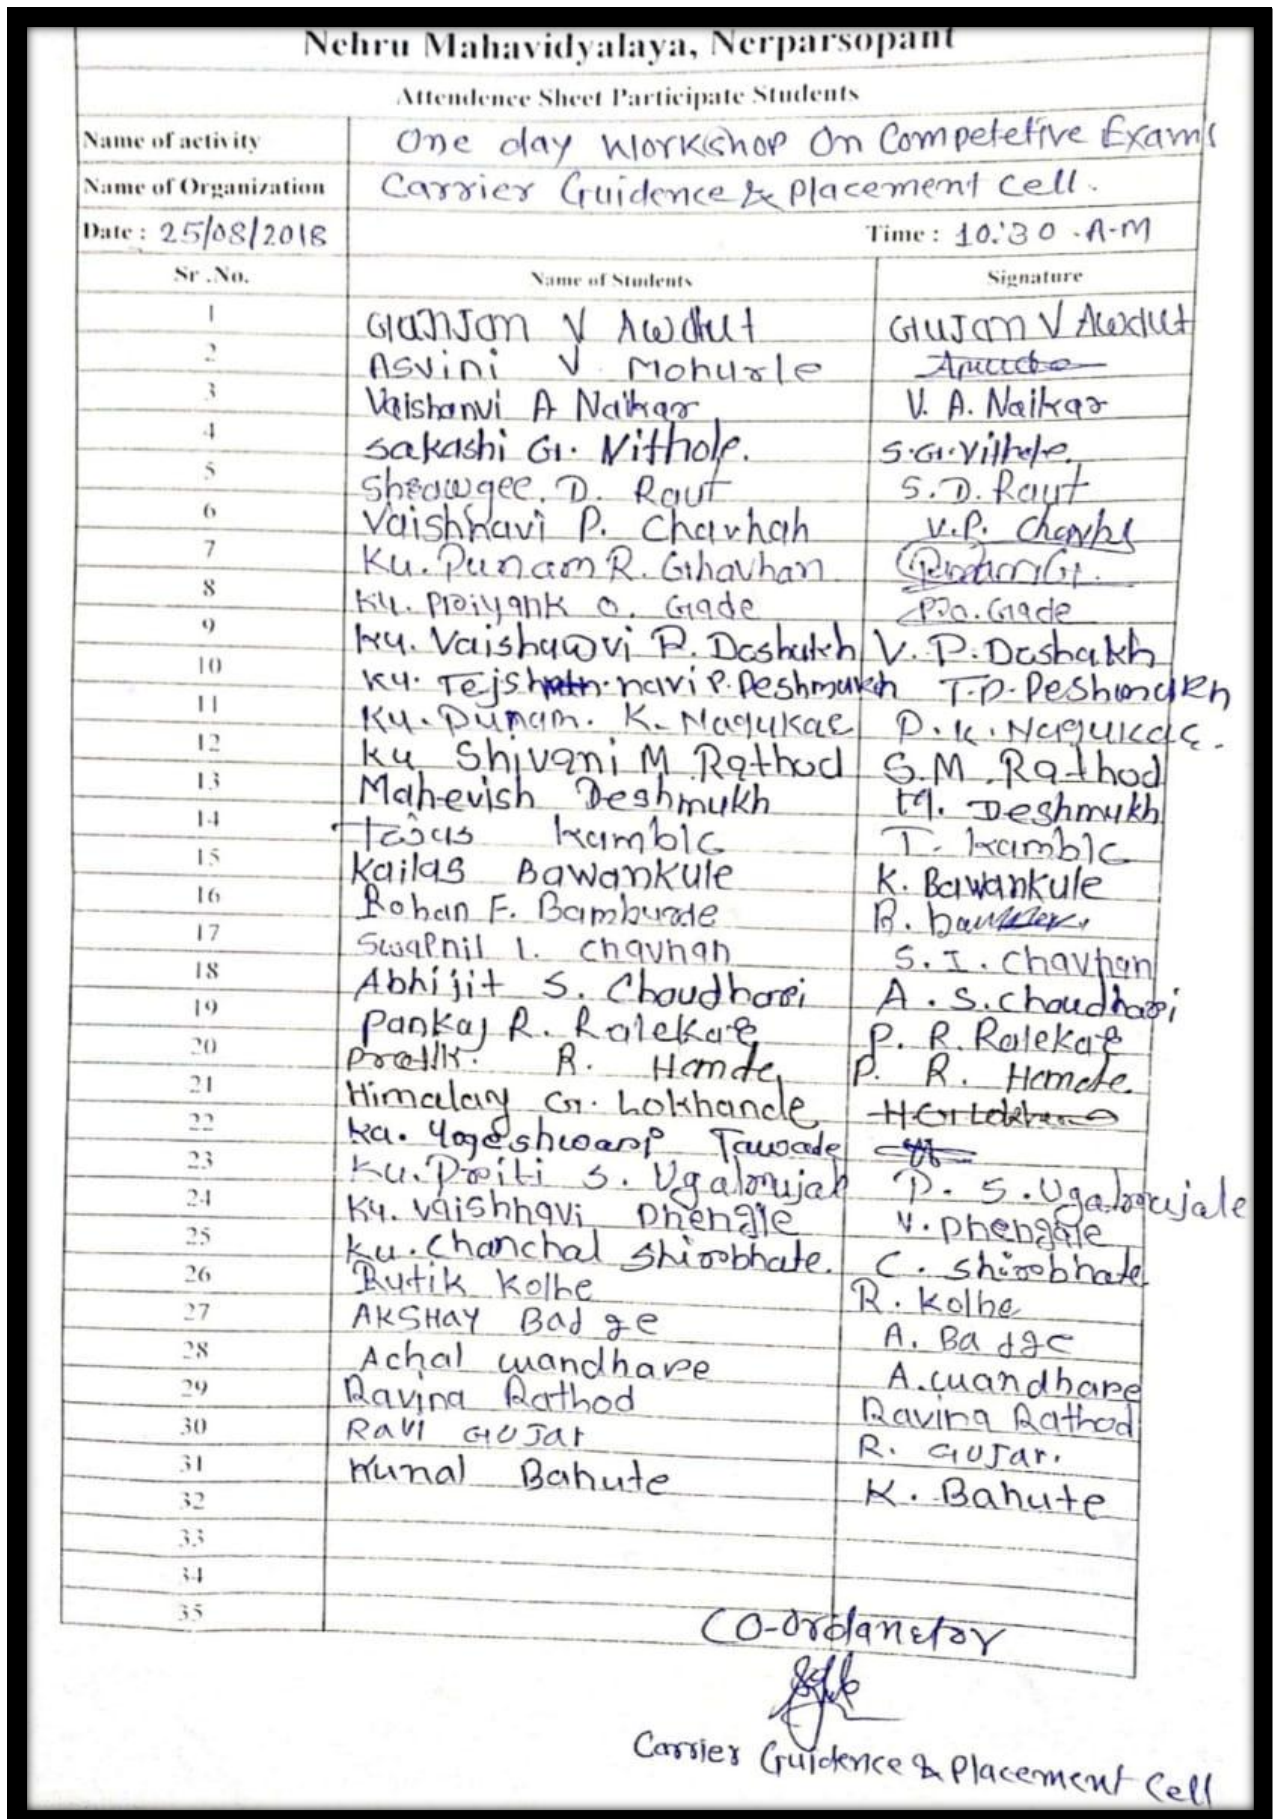 Nehru Mahavidyalaya, Nerparsopant
Attendence Sheet Participate Students
Name of activity One day Workshop On Competetive Exams
Name of Organization Carrier Guidence & Placement Cell.
Date : 25/08/2018 Time : 10:30 A-M
Sr .No. Name of Students Signature
1 V Awdut V Awdut
2 Asvini V. Mohurle
3 Vaishanvi A Naikar V. A. Naikar
4 Sakashi G. Vithole. S.G.Vithole.
5 D. Raut S. D. Raut
6 Vaishnavi P. Chavhan V.P.
7 Ku. Punam R. Ghavhan
8 Ku. Priyank O. Gade P.O. Gade
9 Ku. P. V. P. Dashakh
10 Ku. P. Deshmukh T.P. Deshmukh
11 Ku. Punam. K. Nagukae P. K.
12 Ku Shivani M Rathod S.M. Rathod
13 Mahevish Deshmukh M. Deshmukh
14 Tejas Kamble T. Kamble
15 Kailas Bawankule K. Bawankule
16 Rohan F. Bamburde R.
17 Swapnil I. Chavhan S. I. Chavhan
18 Abhijit S. Choudhari A. S. Choudhari
19 Pankaj R. Ralekar P. R. Ralekar
20 Pratik. R. P. R.
21 Himalay G. Lokhande
22 Ku. Yogeshwari Tawade
23 Ku. Priti S. P. S.
24 Ku. Vaishnavi Dhengle V. Dhengale
25 Ku. Chanchal Shirbhate. C. Shirbhate
26 Rutik Kolhe R. Kolhe
27 AKSHAY Badge A. Badge
28 Achal Wandhare A. Wandhare
29 Ravina Rathod Ravina Rathod
30 Ravi Gujar R. Gujar.
31 Kunal Bahute K. Bahute
32
33
34
35
CO-ordanetor
Carrier Guidence & Placement Cell